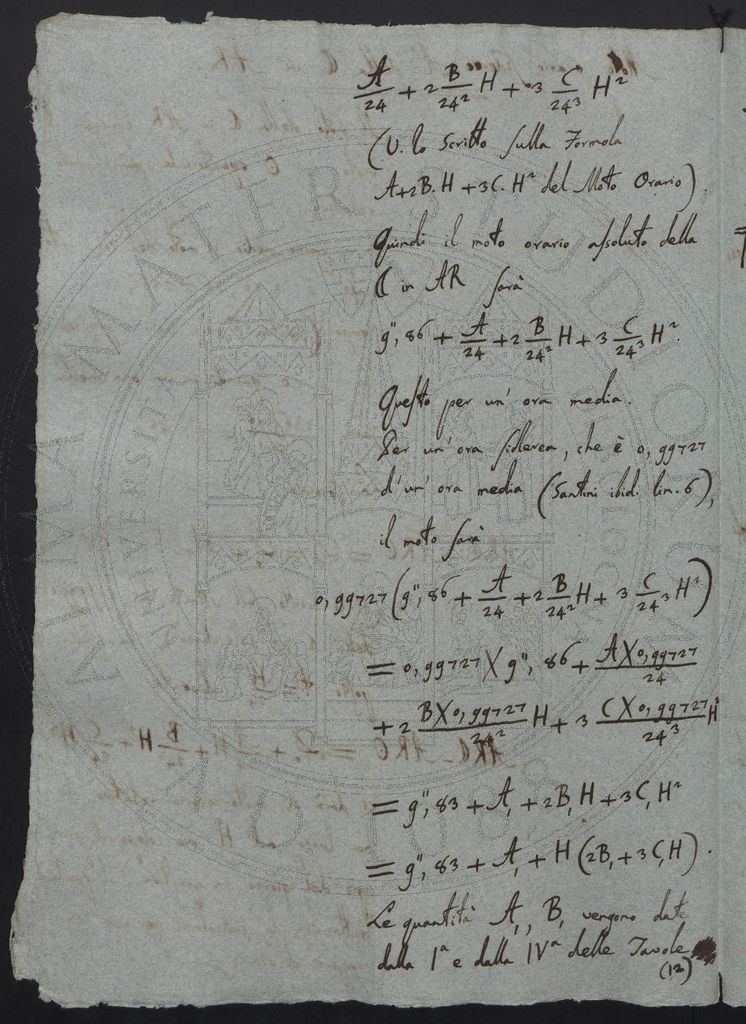 A/24 + 2 B/24² H + 3 C/24³ H²
(V. lo Scritto sulla Formola
A+2B.H+3C.H² del Moto Orario).
Quindi il moto orario assoluto della
☾ in AR sarà
9", 86 + A/24 + 2 B/24² H + 3 C/24³ H².
Questo per un' ora media.
Per un' ora siderea, che è 0,99727
d' un' ora media (Santini ibid. lin. 6),
il moto sarà
0,99727 (9", 86 + A/24 + 2 B/24² H + 3 C/24³ H²)
= 0,99727 X 9", 86 + A X 0,99727/24
+ 2 B X 0,99727/24² H + 3 C X 0,99727/24³ H²
= 9", 83 + A, + 2B, H + 3C, H²
= 9", 83 + A, + H (2B, + 3C, H).
Le quantità A,, B, vengono date
dalla Iª e dalla IVª delle Tavole
(12)
ALMA MATER STUDIORUM